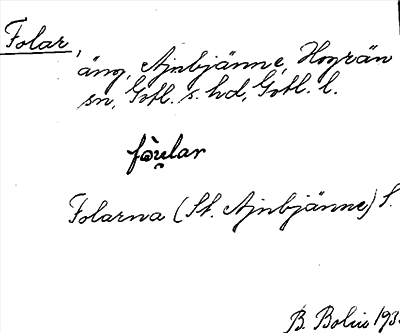 Folar,
äng, Ajnbjänne, Hogrän
sn, Gotl. s. hd, Gotl. l.
fò̀u̯lar
Folarna (St. Ajnbjänne) S.
B. Bolin 193